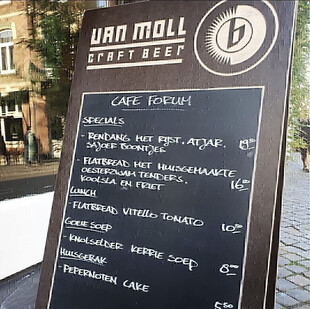 VAN MOLL
CRAFT BEER
b
CAFE FORUM
SPECIALS
- RENDANG MET RIJST, ATJAR,
SAJOER BOONTJES
- FLATBREAD MET HUISGEMAAKTE
OESTERZWAM TENDERS,
KOOLSLA EN FRIET 16.00
LUNCH
- FLATBREAD VITELLO TONATO
GOEIE SOEP
- KNOLSELDER KERRIE SOEP 8.00
HUISGEBAK
- PEPERNOTEN CAKE 5.50